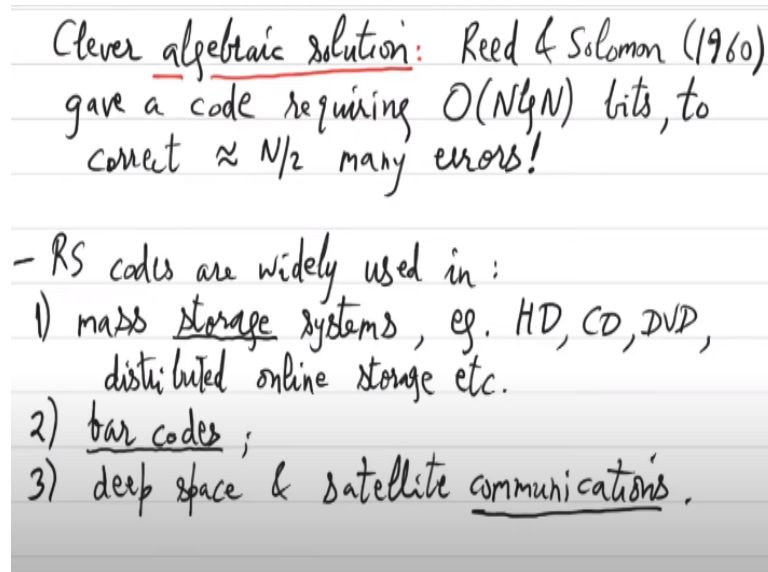 Clever algebraic solution: Reed & Solomon (1960)
gave a code requiring O(NlgN) bits, to
correct ≈ N/2 many errors!
- RS codes are widely used in :
1) mass storage systems, eg. HD, CD, DVD,
distributed online storage etc.
2) bar codes ;
3) deep space & satellite communications.